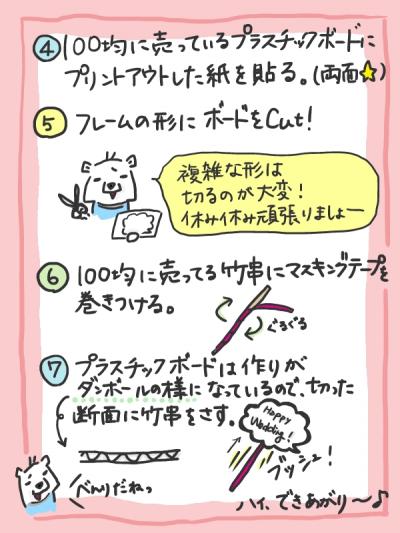 ④ 100均に売っているプラスチックボードに
プリントアウトした紙を貼る。(両面☆)
⑤ フレームの形にボードをCut!
複雑な形は
切るのが大変!
休み休み頑張りましょー
⑥ 100均に売ってる竹串にマスキングテープを
巻きつける。
ぐるぐる
⑦ プラスチックボードは作りが
ダンボールの様になっているので、切った
断面に竹串をさす。
Happy
Wedding!
ブッシュ!
べんりだねっ
ハイ、できあがり〜♪